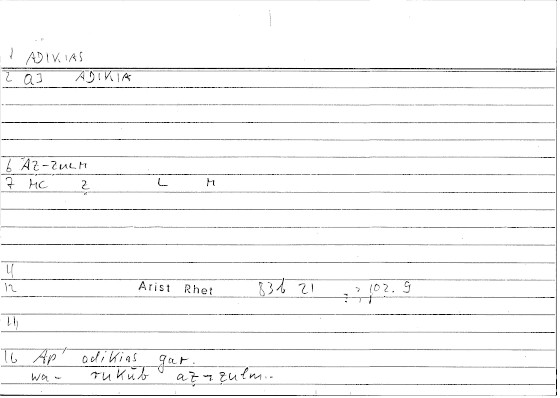 1 ADIKIAS
2 QJ ADIKIA
6 AZ-ZULM
7 MC Ẓ L M
11
12 Arist Rhet 83b 21 102. 9
14
16 Ap' adikias gar.
wa- rukūb aẓ-ẓulm..